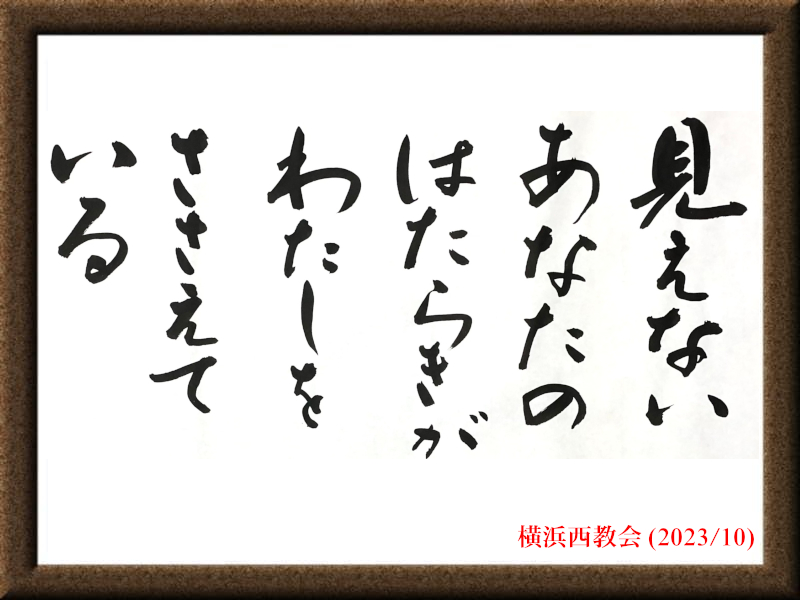 見えない
あなたの
はたらきが
わたしを
ささえて
いる
横浜西教会 (2023/10)